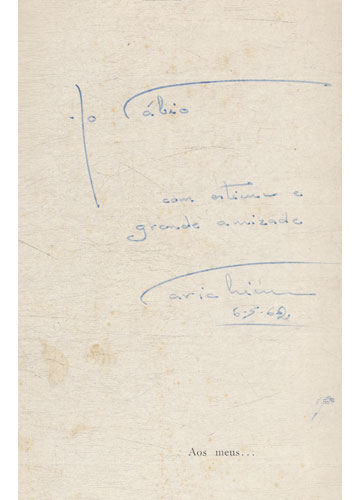 Ao Fábio
com estima e
grande amizade
6-5-62
Aos meus...